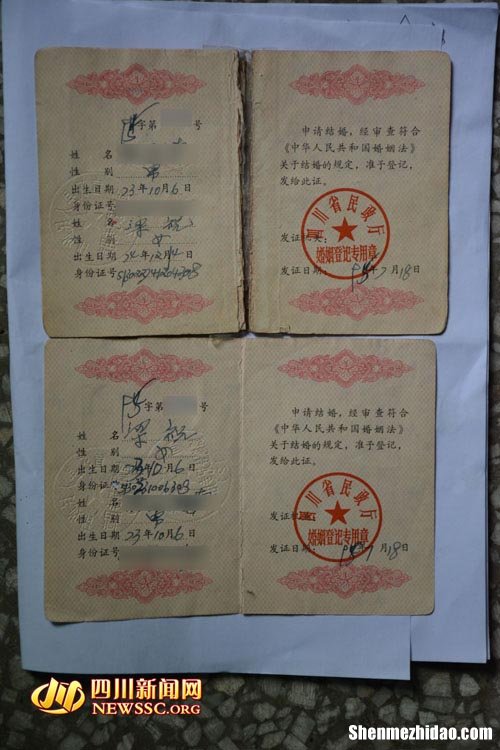 字第 号
姓 名
性 别 男
出生日期 23年10月6日
身份证号
姓 名 梁
性 别 女
出生日期 24年12月14日
身份证号
申请结婚,经审查符合
《中华人民共和国婚姻法》
关于结婚的规定,准予登记,
发给此证。
四川省民政厅
婚姻登记专用章
发证机关:
发证日期: 年7月18日
字第 号
姓 名 梁
性 别 女
出生日期 年 月6日
身份证号
姓 名
性 别 男
出生日期 23年10月6日
身份证号
申请结婚,经审查符合
《中华人民共和国婚姻法》
关于结婚的规定,准予登记,
发给此证。
四川省民政厅
婚姻登记专用章
发证机关:
发证日期: 年7月18日
四川新闻网
NEWSSC.ORG
Shenmezhidao.com